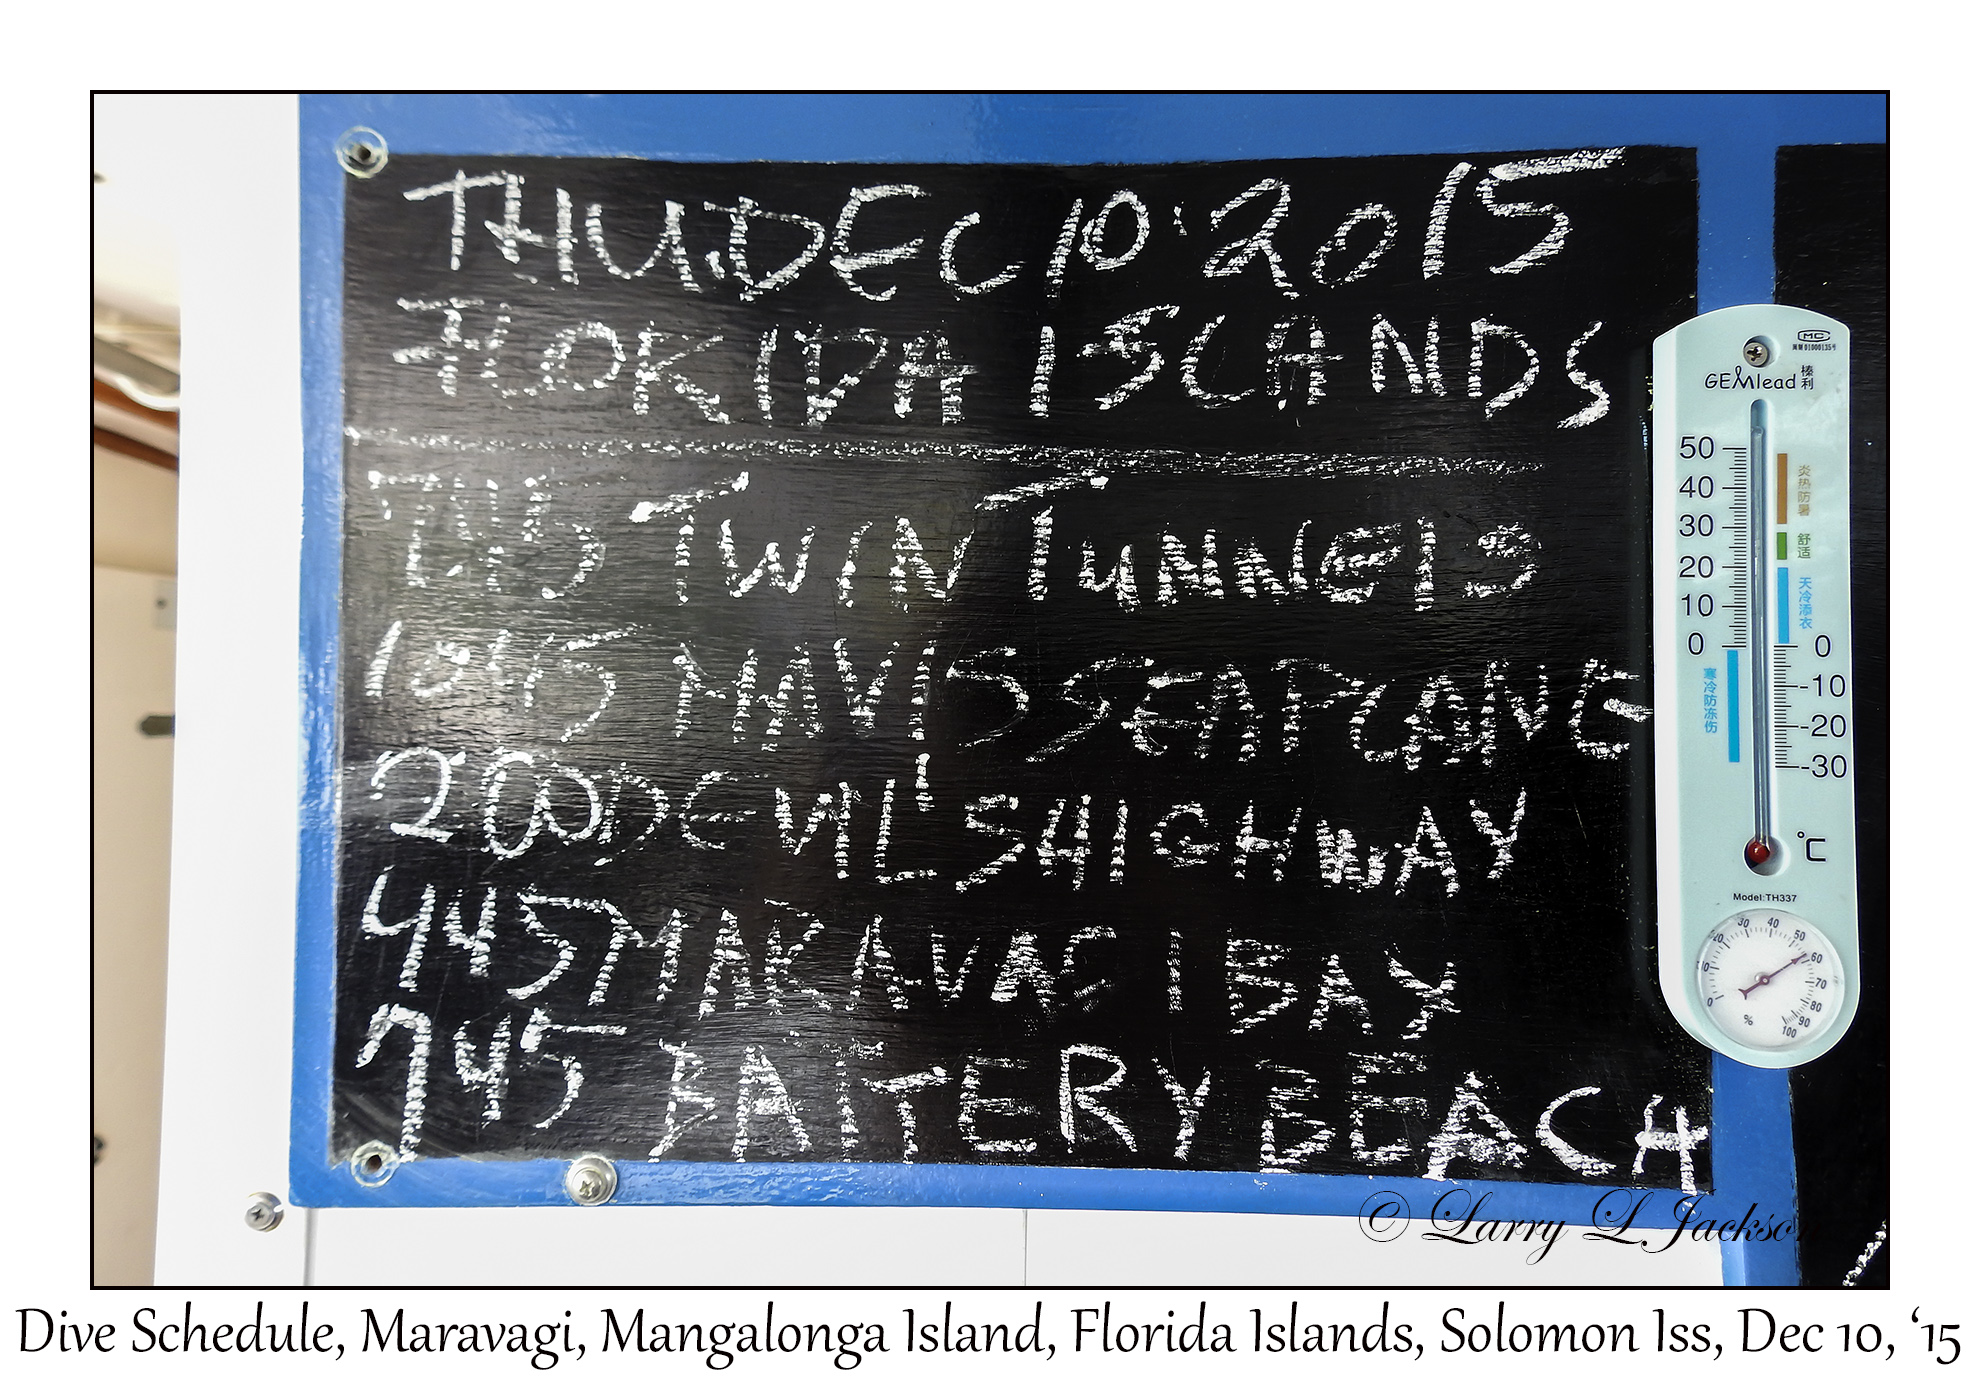 THU.DEC 10·2015
FLORIDA ISLANDS
745 TWIN TUNNELS
1045 MAVIS SEAPLANE
200 DEVIL'S HIGHWAY
445 MARAVAGI BAY
745 BATTERY BEACH
MC
GEMlead 榛利
50
40
30
20
10
0
炎热防暑
舒适
天冷添衣
寒冷防冻伤
0
-10
-20
-30
°C
Model:TH337
0 10 20 30 40 50 60 70 80 90 100
%
© Larry L Jackson
Dive Schedule, Maravagi, Mangalonga Island, Florida Islands, Solomon Iss, Dec 10, ‘15